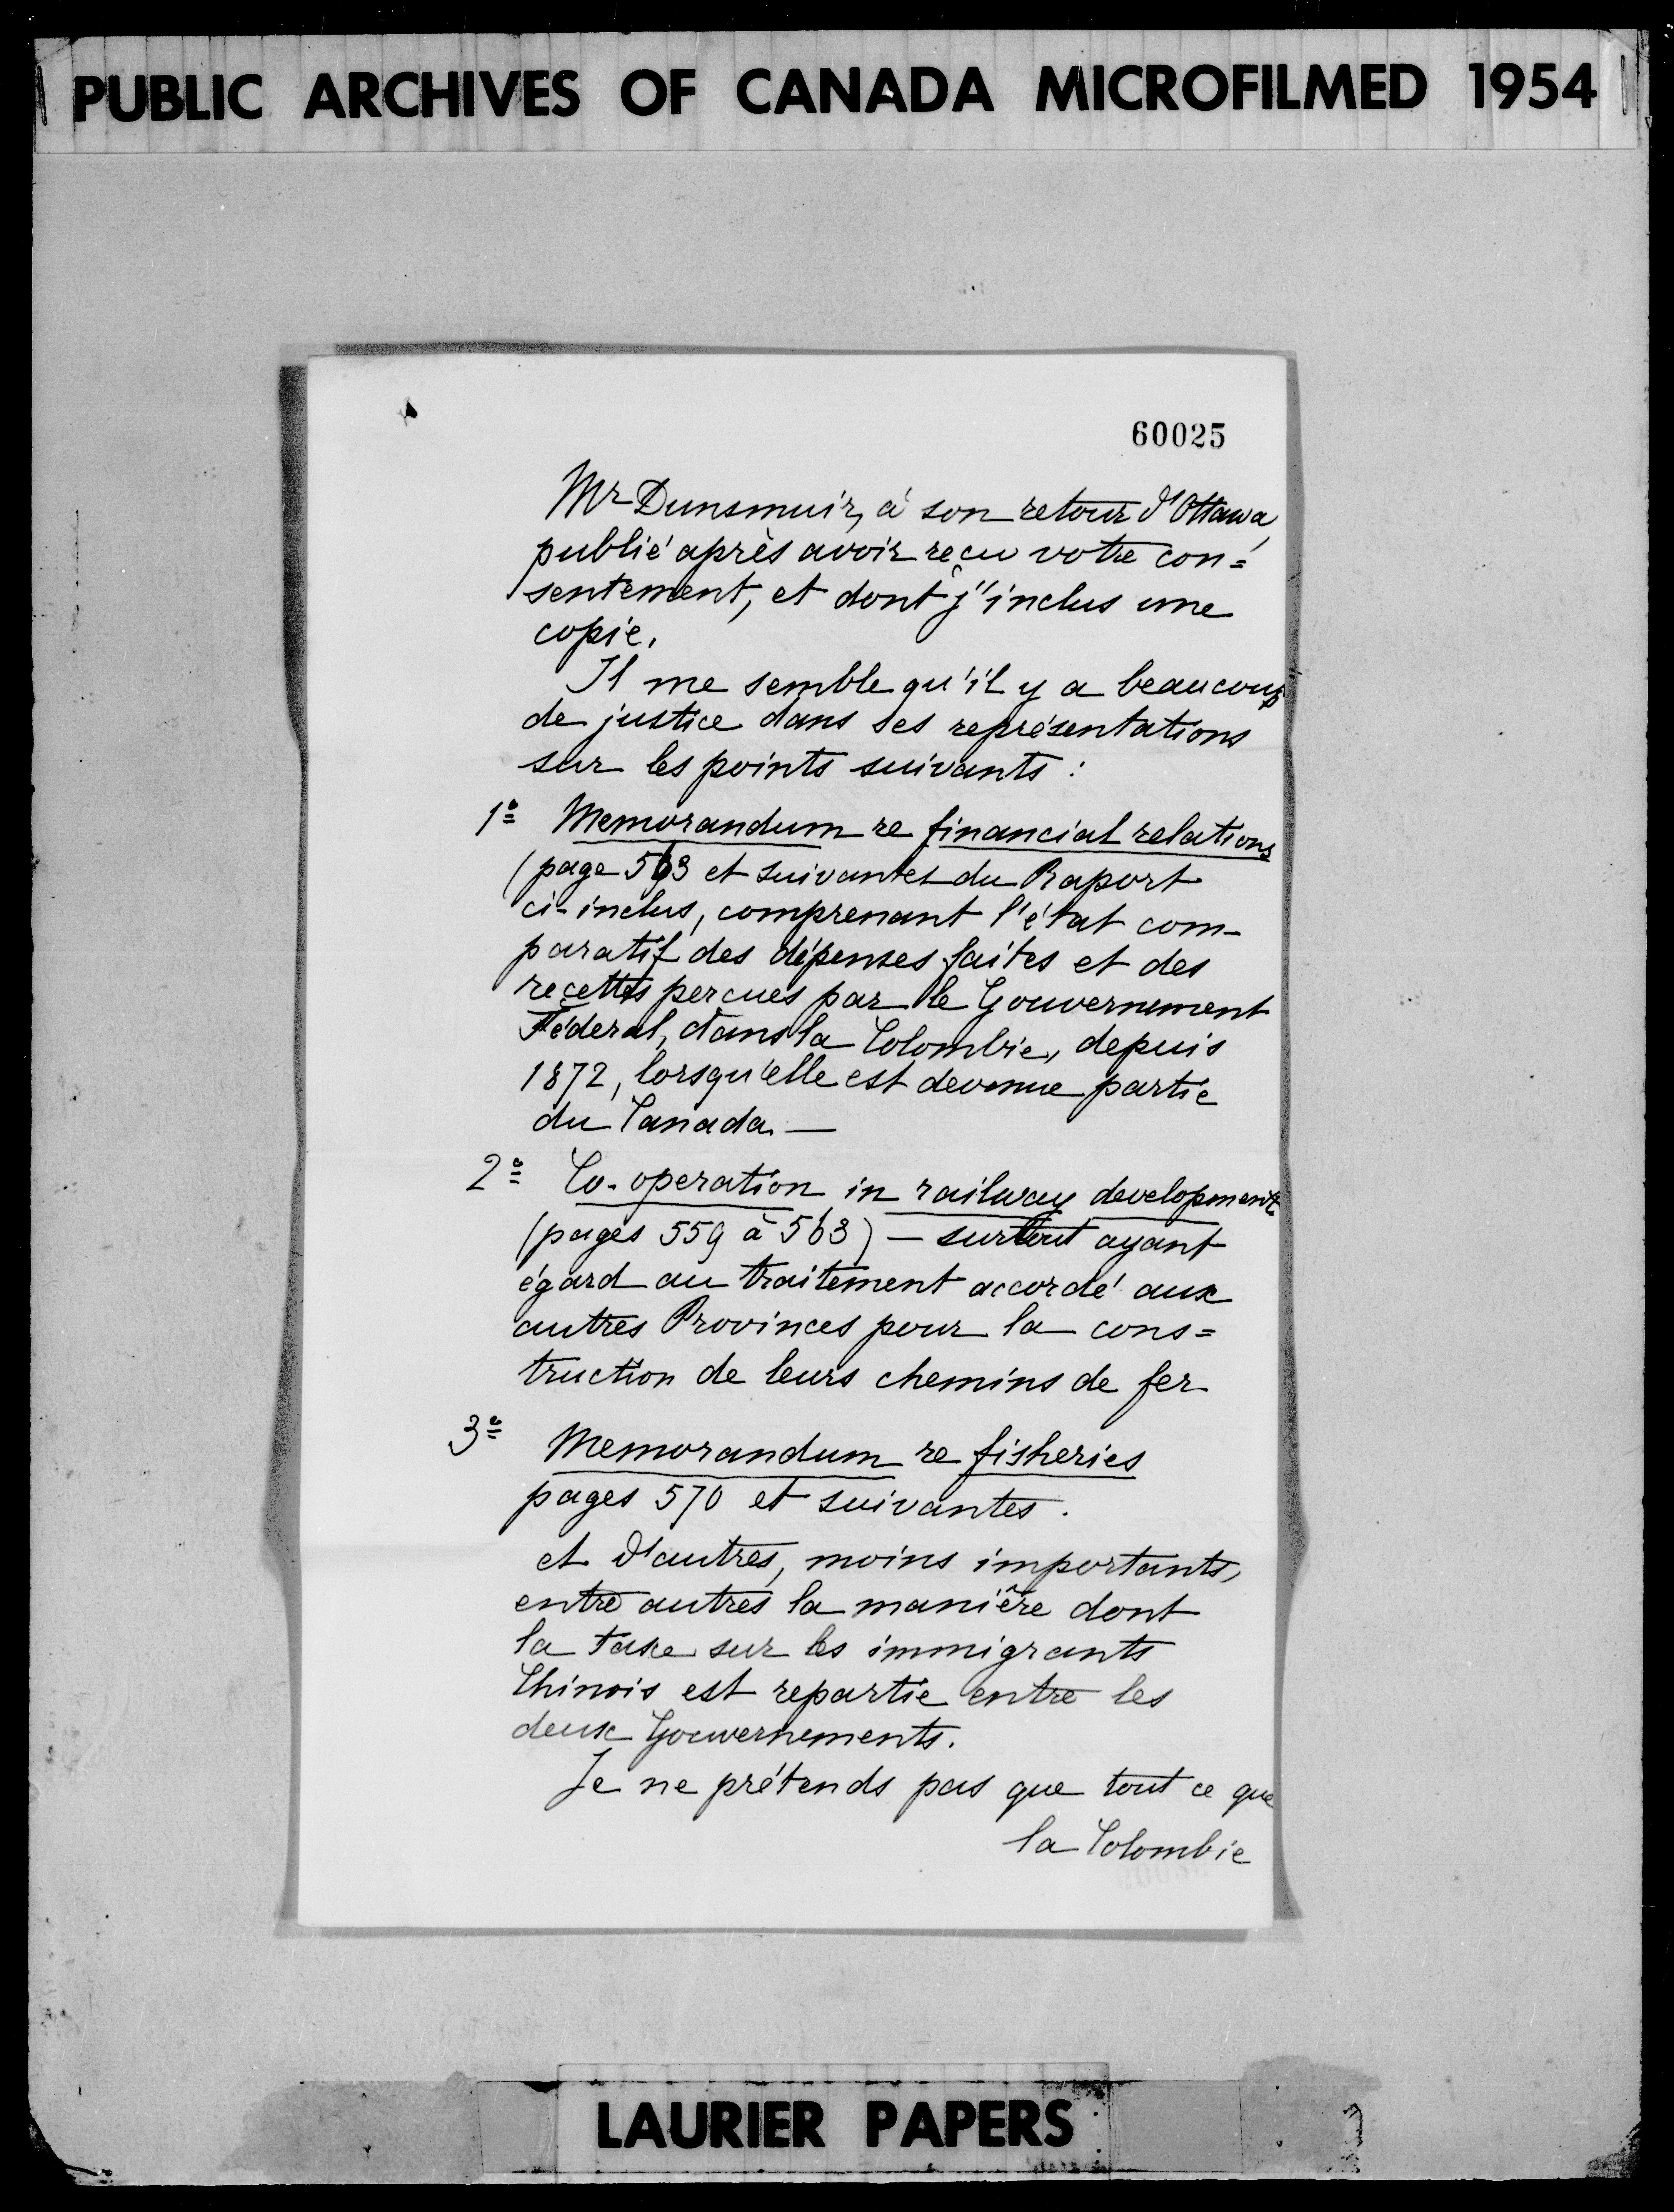 PUBLIC ARCHIVES OF CANADA MICROFILMED 1954
60025
Mr Dunsmuir, à son retour d'Ottawa,
publié après avoir reçu votre con=
sentement, et dont j'inclus une
copie.
Il me semble qu'il y a beaucoup
de justice dans ses représentations
sur les points suivants :
1º Memorandum re financial relations
(page 563 et suivantes du Raport
ci-inclus, comprenant l'état com-
paratif des dépenses faites et des
recettes percues par le Gouvernement
Féderal, dans la Colombie, depuis
1872, lorsqu'elle est devenue partie
du Canada. —
2º Co-operation in railway development
(pages 559 à 563) — surtout ayant
égard au traitement accordé aux
autres Provinces pour la cons=
truction de leurs chemins de fer
3º Memorandum re fisheries
pages 570 et suivantes.
et d'autres, moins importants,
entre autres la manière dont
la taxe sur les immigrants
Chinois est repartie entre les
deux Gouvernements.
Je ne prétends pas que tout ce que
la Colombie
LAURIER PAPERS